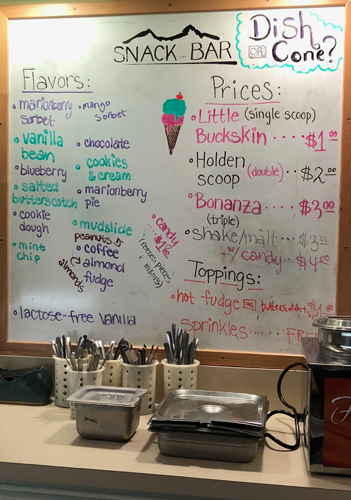 SNACK BAR
Dish
OR
Cone?
Flavors:
• marionberry
sorbet
• vanilla
bean
• blueberry
• salted
butterscotch
• cookie
dough
• mint
chip
• mango
sorbet
• chocolate
• cookies
& cream
• marionberry
pie
• mudslide
peanuts
coffee
almond
fudge
almonds
• candy
$1.25
• lactose-free vanilla
Prices:
• Little (single scoop)
Buckskin ..... $1.00
• Holden
scoop (double) ... $2.00
• Bonanza .... $3.00
(triple)
• shake/malt ... $3.50
w/ candy ... $4.00
Toppings:
• hot fudge OR butterscotch $1.00
sprinkles ......